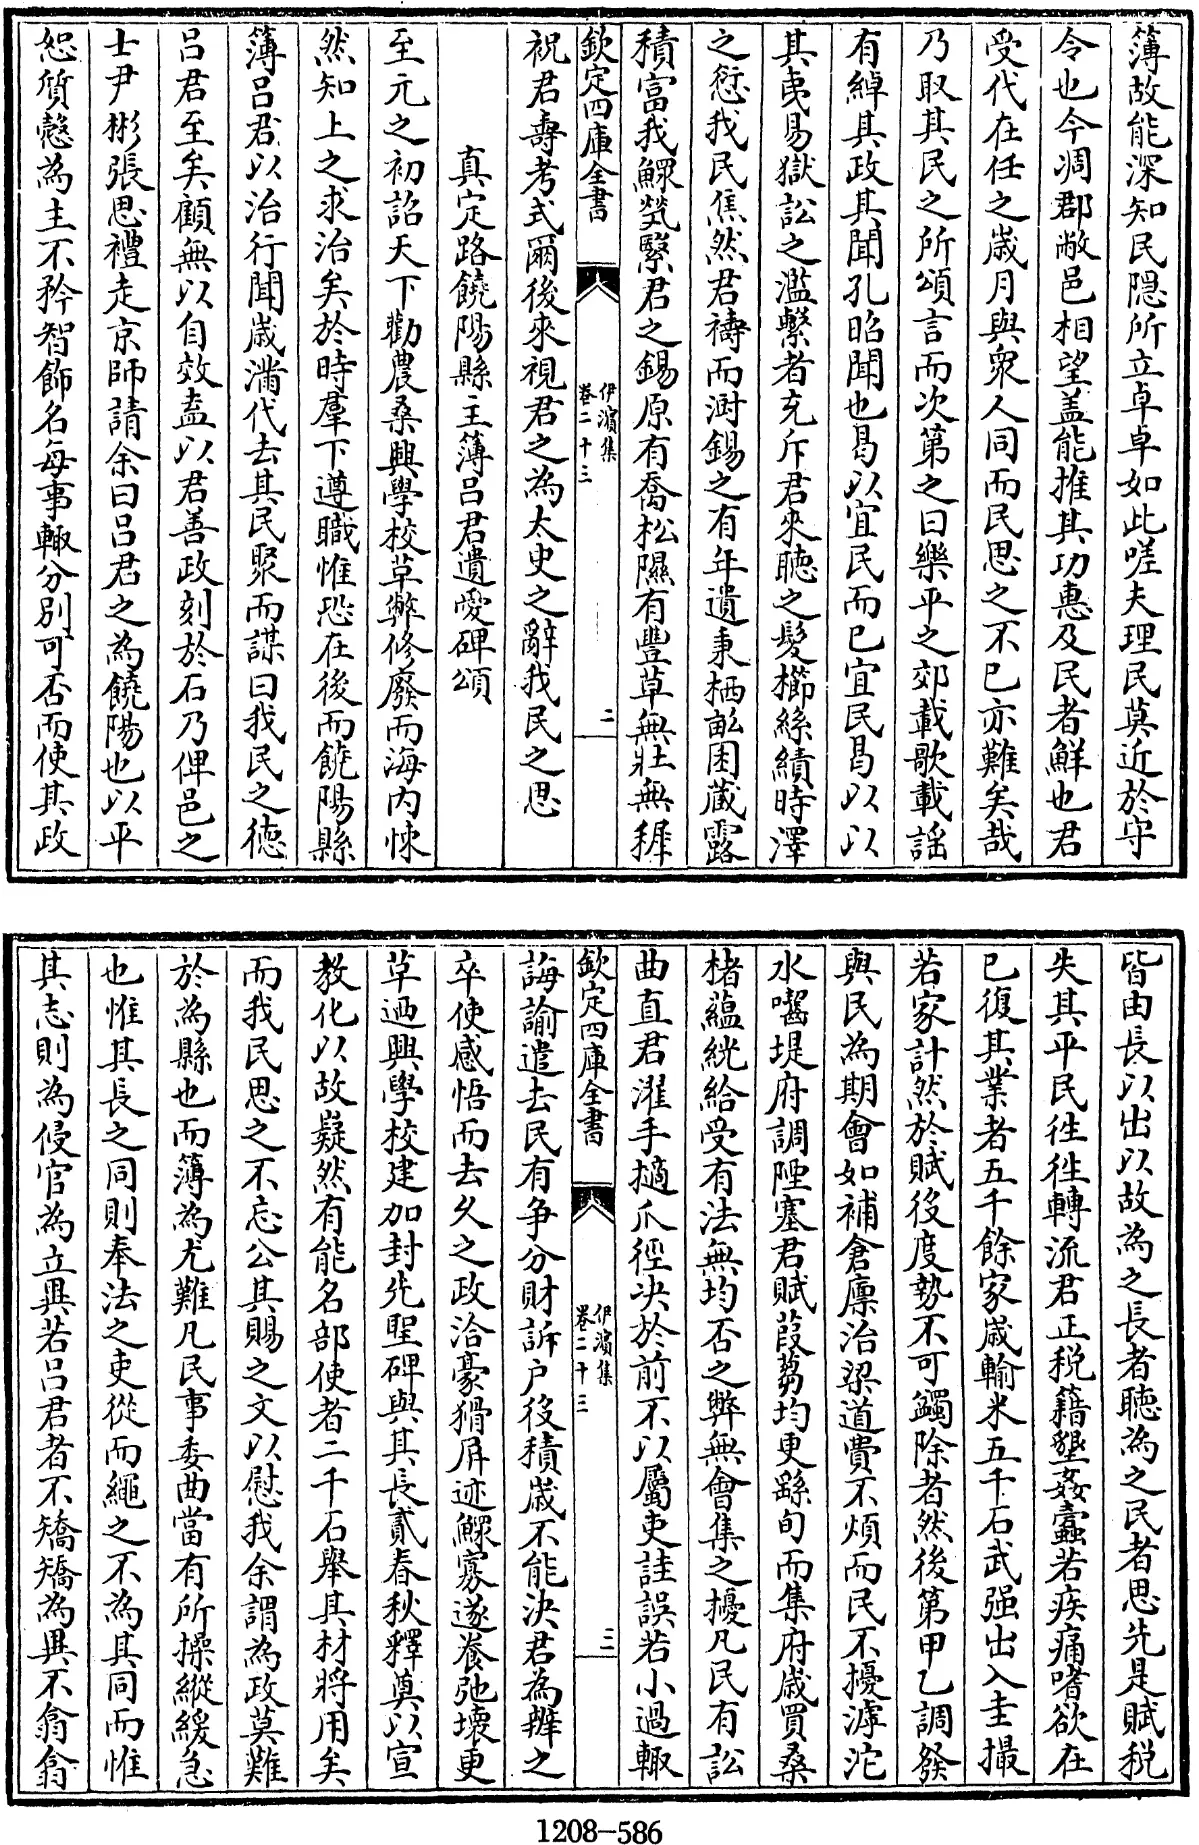 簿故能深知民隠所立卓卓如此嗟夫理民莫近於守
令也今凋郡敝邑相望盖能推其功惠及民者鮮也君
受代在任之歳月與衆人同而民思之不已亦難矣哉
乃取其民之所頌言而次第之曰樂平之郊載歌載謡
有綽其政其聞孔昭聞也曷以宜民而已宜民曷以以
其夷易獄訟之濫繫者充斥君來聽之髮櫛絲績時澤
之愆我民焦然君禱而澍錫之有年遺秉栖畝囷蔵露
積富我鰥煢繄君之錫原有喬松隰有豐草無壯無穉
欽定四庫全書
伊濱集
卷二十三
二
祝君夀考式爾後來視君之為太史之辭我民之思
真定路饒陽縣主簿吕君遺愛碑頌
至元之初詔天下勸農桑興學校革弊修廢而海内悚
然知上之求治矣於時羣下遵職惟恐在後而饒陽縣
簿吕君以治行聞歳滿代去其民聚而謀曰我民之德
吕君至矣顧無以自效盍以君善政刻於石乃俾邑之
士尹彬張思禮走京師請余曰吕君之為饒陽也以平
恕質慤為主不矜智飾名每事輙分别可否而使其政
皆由長以出以故為之長者聽為之民者思先是賦税
失其平民徃徃轉流君正税籍墾姦蠹若疾痛嗜欲在
已復其業者五千餘家嵗輸米五千石武强出入圭撮
若家計然於賦役度勢不可蠲除者然後第甲乙調發
與民為期會如補倉廩治梁道費不煩而民不擾滹沱
水囓堤府調陻塞君賦葭蒭均更繇旬而集府嵗買桑
楮藴絖給受有法無均否之弊無會集之擾凡民有訟
曲直君濯手擿爪徑决於前不以屬吏詿誤若小過輙
欽定四庫全書
伊濱集
卷二十三
三
誨諭遣去民有争分財訴户役積嵗不能決君為辨之
卒使感悟而去久之政洽豪猾屏迹鰥寡遂養弛壞更
草迺興學校建加封先聖碑與其長貳春秋釋奠以宣
教化以故嶷然有能名部使者二千石舉其材將用矣
而我民思之不忘公其賜之文以慰我余謂為政莫難
於為縣也而簿為尤難凡民事委曲當有所操縱緩急
也惟其長之同則奉法之吏從而繩之不為其同而惟
其志則為侵官為立異若吕君者不矯矯為異不翕翕
1208-586